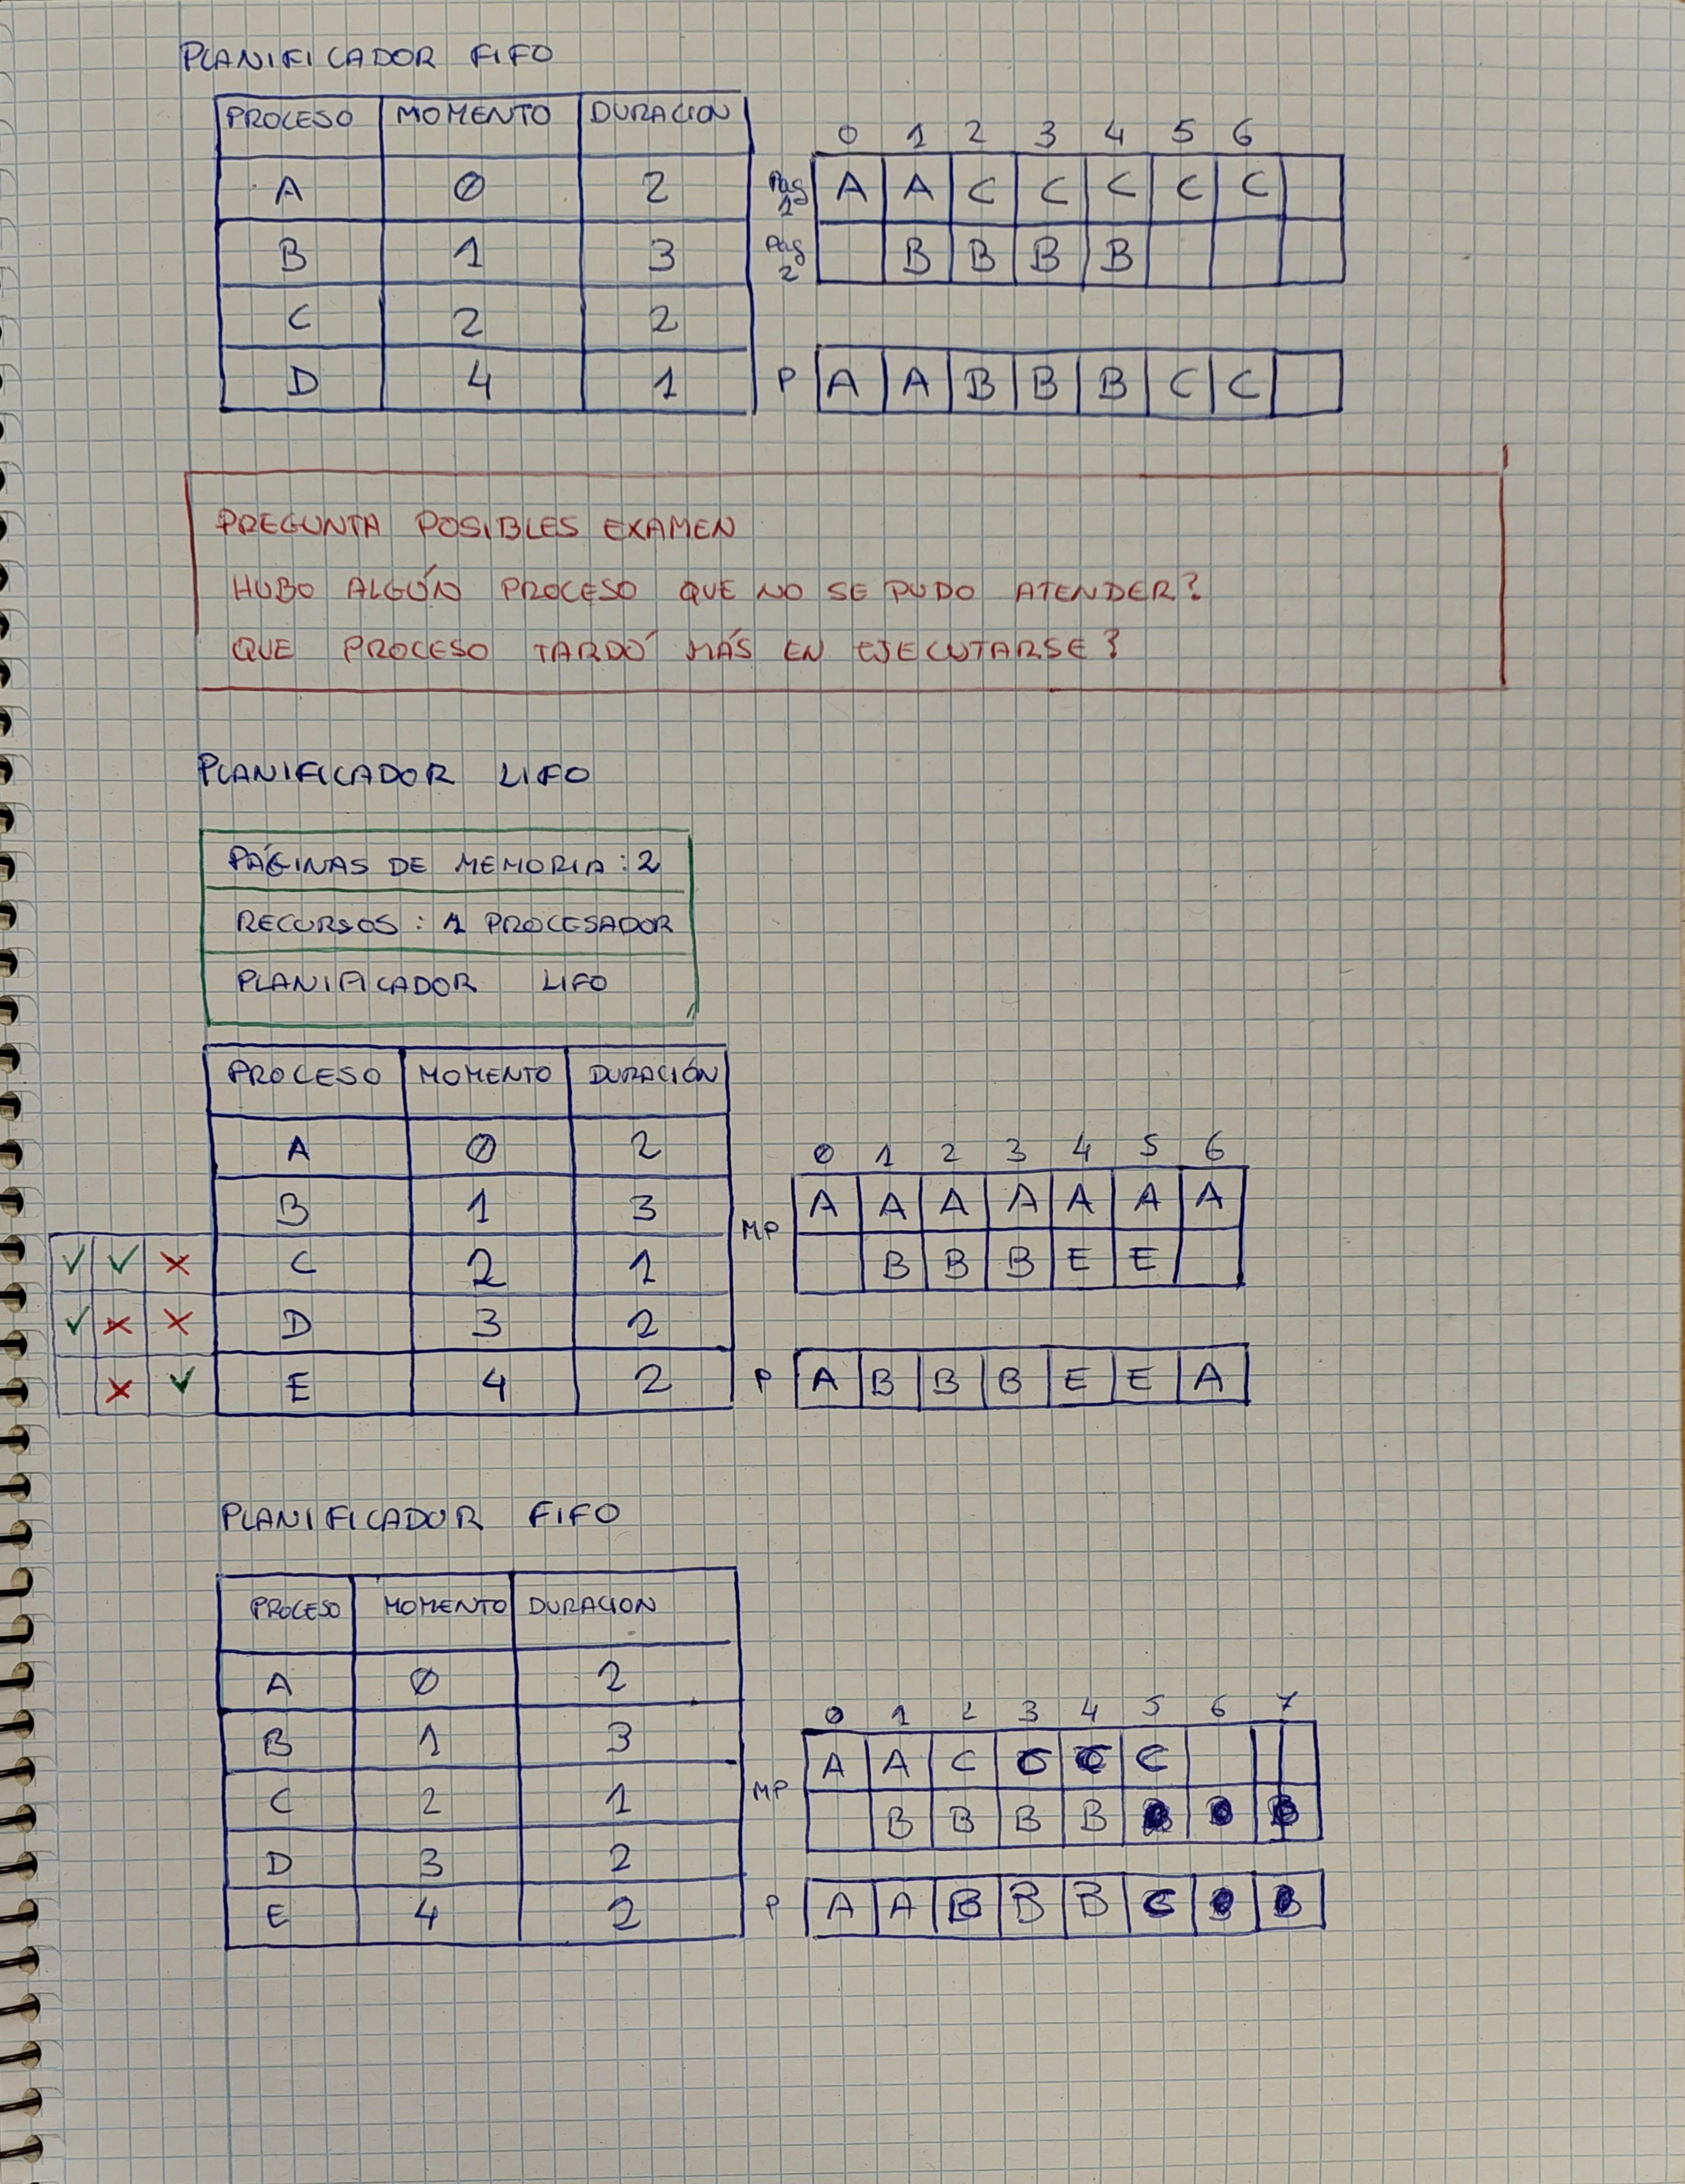 PLANIFICADOR FIFO
PROCESO MOMENTO DURACION
A 0 2
B 1 3
C 2 2
D 4 1
0 1 2 3 4 5 6
Pag 1 A A C C C C C
Pag 2 B B B B
P A A B B B C C
PREGUNTA POSIBLES EXAMEN
HUBO ALGÚN PROCESO QUE NO SE PUDO ATENDER?
QUE PROCESO TARDÓ MÁS EN EJECUTARSE?
PLANIFICADOR LIFO
PÁGINAS DE MEMORIA : 2
RECURSOS : 1 PROCESADOR
PLANIFICADOR LIFO
PROCESO MOMENTO DURACIÓN
A 0 2
B 1 3
✓ ✓ × C 2 1
✓ × × D 3 2
× ✓ E 4 2
0 1 2 3 4 5 6
MP A A A A A A A
B B B E E
P A B B B E E A
PLANIFICADOR FIFO
PROCESO MOMENTO DURACION
A 0 2
B 1 3
C 2 1
D 3 2
E 4 2
0 1 2 3 4 5 6 7
MP A A C C C C
B B B B
P A A B B B C